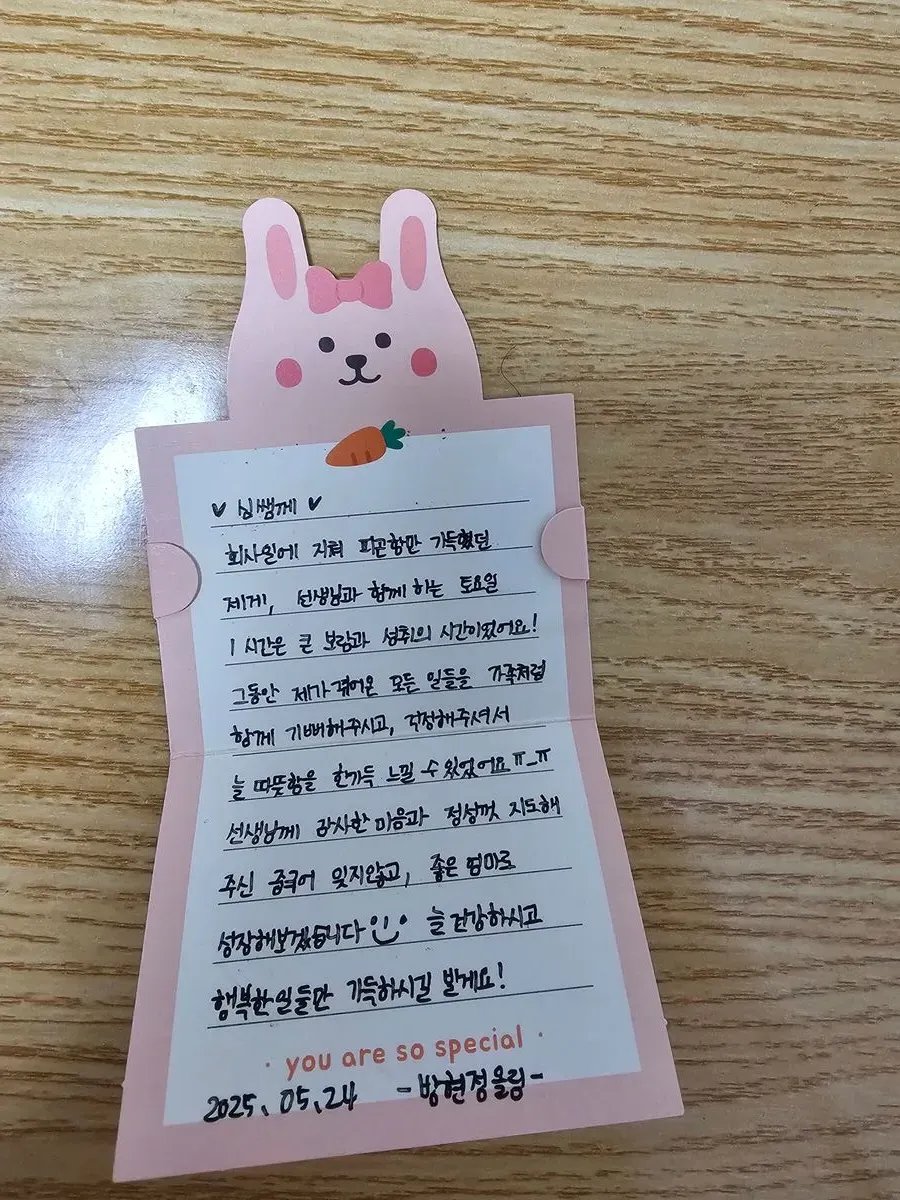 ♥ 심쌤께 ♥
회사일에 지쳐 피곤함만 가득했던
제게, 선생님과 함께 하는 토요일
1시간은 큰 보람과 성취의 시간이었어요!
그동안 제가 겪어온 모든 일들을 가족처럼
함께 기뻐해주시고, 걱정해주셔서
늘 따뜻함을 한가득 느낄 수 있었어요ㅠ_ㅠ
선생님께 감사한 마음과 정성껏 지도해
주신 중국어 잊지않고, 좋은 엄마로
성장해보겠습니다 늘 건강하시고
행복한 일들만 가득하시길 빌게요!
· you are so special ·
2025. 05. 24 - 방현정 올림 -